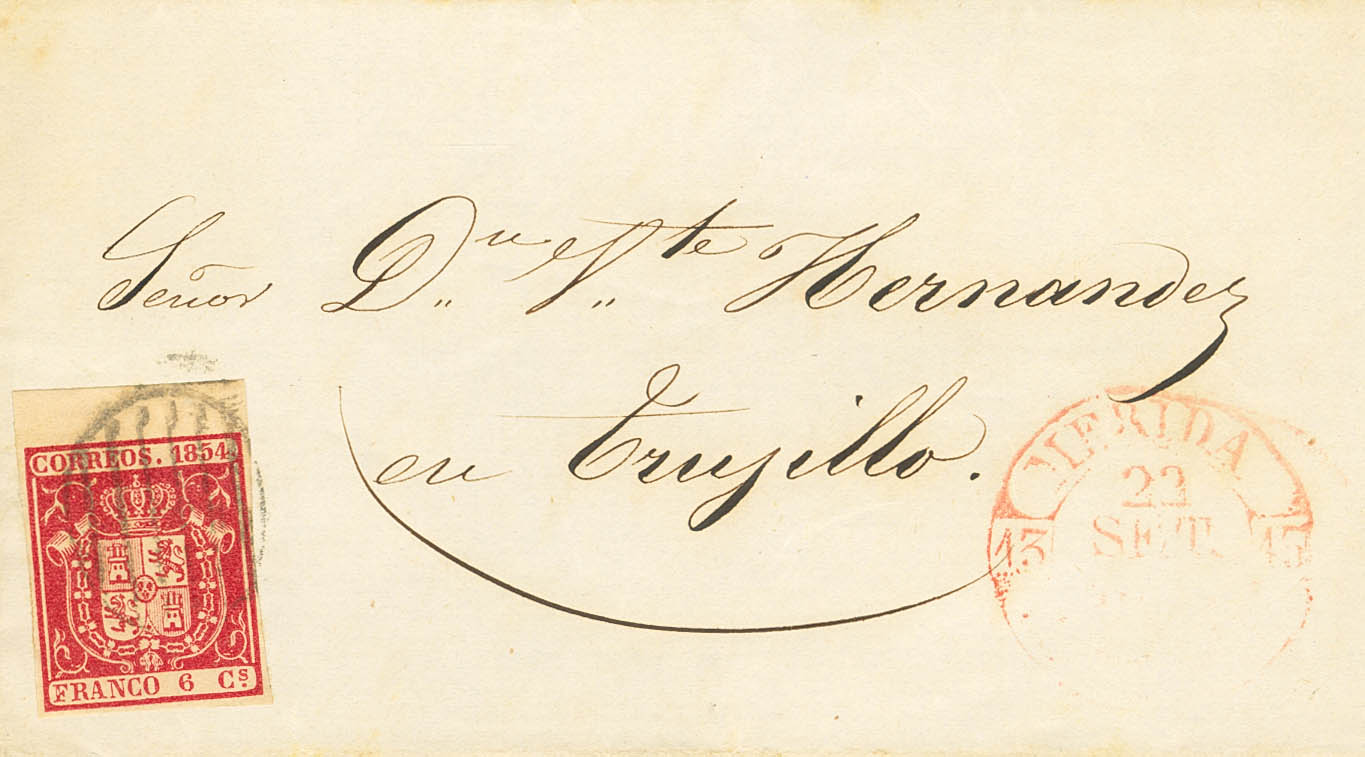 Señor Dn. Vte. Hernandez
en Trujillo.
CORREOS. 1854
FRANCO 6 Cs.
MERIDA
22
SET.
13 13